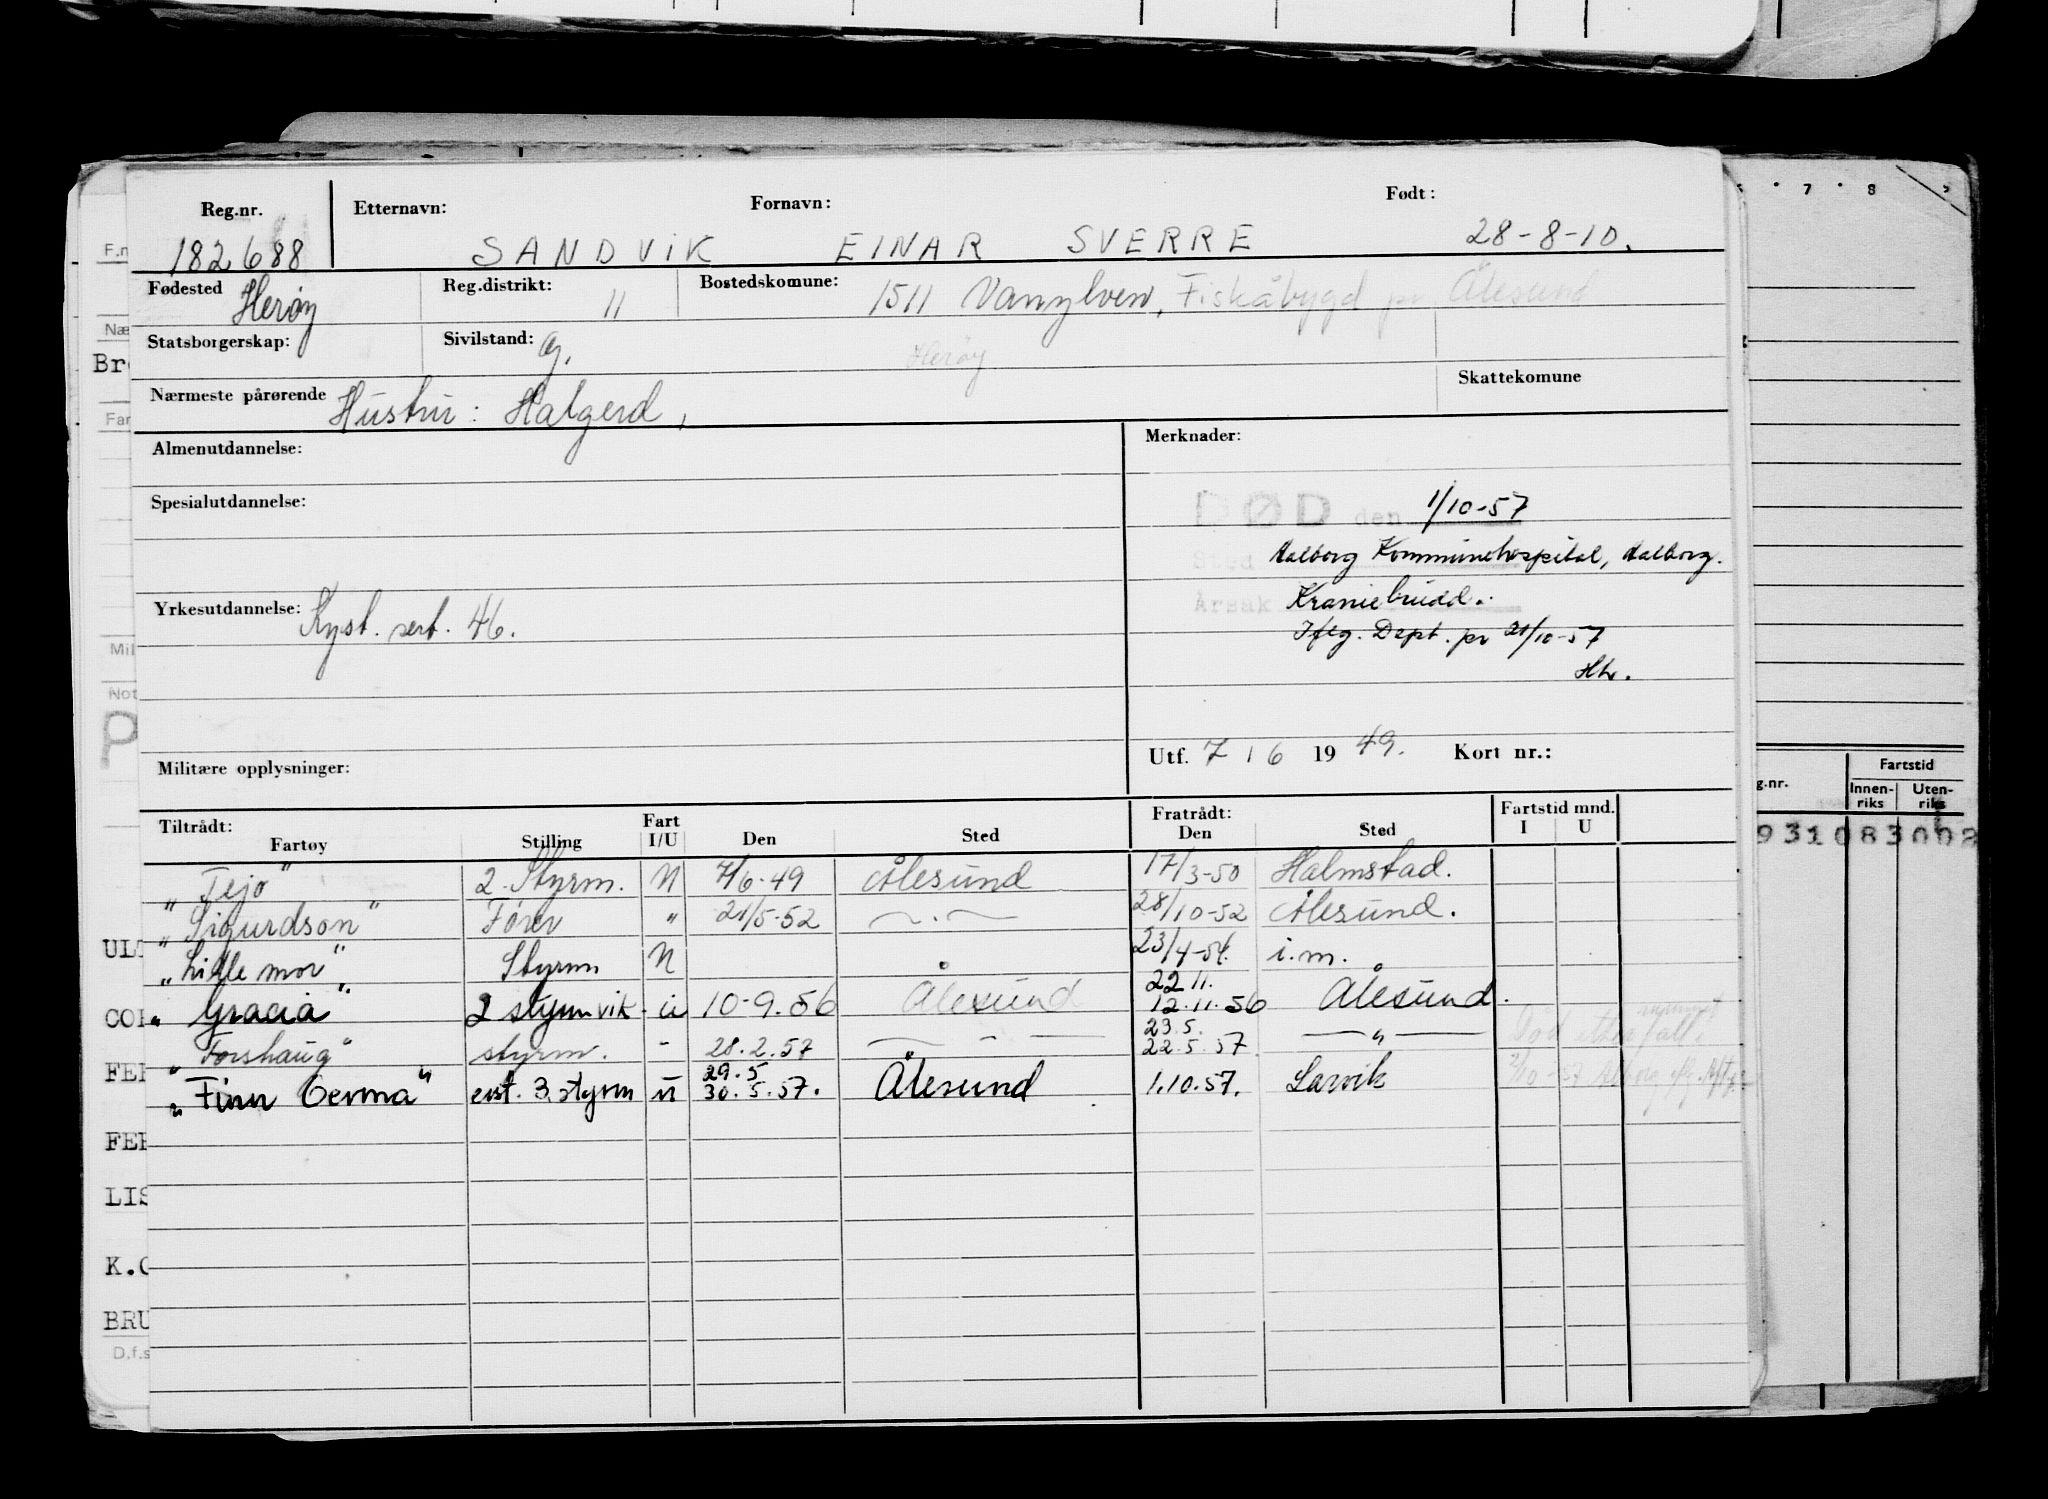 7 8
Reg.nr. Etternavn: Fornavn: Født:
182688 SANDVIK EINAR SVERRE 28-8-10.
Fødested Herøy Reg.distrikt: 11 Bostedskomune: 1511 Vanylven, Fiskåbygd pr Ålesund
Statsborgerskap: Sivilstand: G. Herøy
Nærmeste pårørende Hustru: Halgerd, Skattekomune
Almenutdannelse: Merknader:
Spesialutdannelse: DØD den 1/10-57
Sted Aalborg Kommunehospital, Aalborg.
Yrkesutdannelse: Kyst. sert. 46. Årsak Kraniebrudd.
Iflg. Dept. pr 21/10-57
Hh.
Militære opplysninger: Utf. 7 / 6 19 49. Kort nr.:
Tiltrådt: Fart Fratrådt: Fartstid mnd.
Fartøy Stilling I/U Den Sted Den Sted I U
"Tejo" 2. Styrm. N 7/6-49 Ålesund 17/3-50 Halmstad.
"Sigurdson" Fører " 21/5-52 —·— 28/10-52 Ålesund.
"Lille mor" Styrm N 23/4-54. i.m.
"Gracia" 2 styrm vik. U 10-9.56 Ålesund 22 11. 12.11.56 Ålesund.
"Forshaug" styrm. - 28.2.57 — — — 23.5. 22.5.57 —"—
"Finn Germa" est. 3. styrm U 29.5 30.5.57. Ålesund 1.10.57. Larvik
F.n
Næ
Bro
Far
Mil
Not
P
ULT
COR
FER
FER
LIS
K.O
BRU
D.f.s
g.nr. Fartstid
Innen-riks Uten-riks